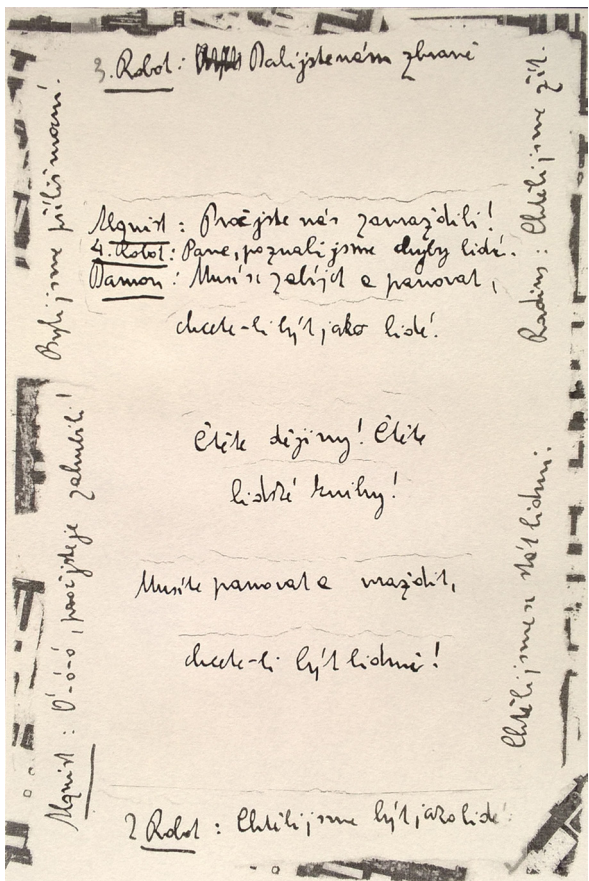 3. Robot: Dali jste nám zbraně
Alquist: Proč jste nás zavraždili!
4. Robot: Pane, poznali jsme chyby lidí.
Damon: zabíjet a panovat,
chcete-li být jako lidé.
Čtěte dějiny! Čtěte
lidské knihy!
Musíte panovat a vraždit,
chcete-li být lidmi!
2 Robot: Chtěli jsme být jako lidé.
Byli jsme příliš
Alquist: Ó-ó-ó, proč jste je zahubili!
Radius: Chtěli jsme žít.
Chtěli jsme se stát lidmi.